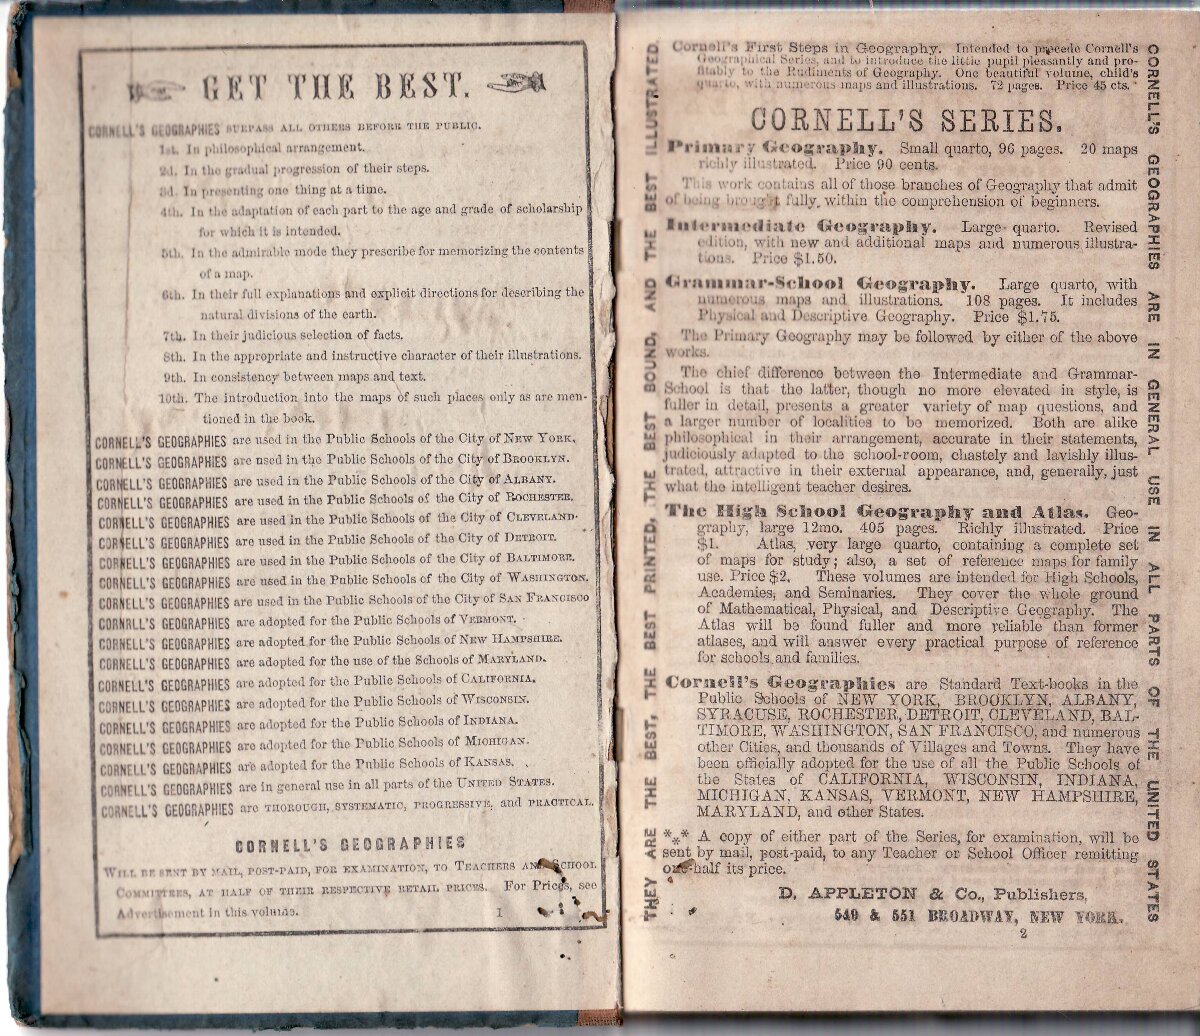 GET THE BEST.
CORNELL'S GEOGRAPHIES SURPASS ALL OTHERS BEFORE THE PUBLIC.
1st. In philosophical arrangement.
2d. In the gradual progression of their steps.
3d. In presenting one thing at a time.
4th. In the adaptation of each part to the age and grade of scholarship
for which it is intended.
5th. In the admirable mode they prescribe for memorizing the contents
of a map.
6th. In their full explanations and explicit directions for describing the
natural divisions of the earth.
7th. In their judicious selection of facts.
8th. In the appropriate and instructive character of their illustrations.
9th. In consistency between maps and text.
10th. The introduction into the maps of such places only as are men-
tioned in the book.
CORNELL'S GEOGRAPHIES are used in the Public Schools of the City of NEW YORK.
CORNELL'S GEOGRAPHIES are used in the Public Schools of the City of BROOKLYN.
CORNELL'S GEOGRAPHIES are used in the Public Schools of the City of ALBANY.
CORNELL'S GEOGRAPHIES are used in the Public Schools of the City of ROCHESTER.
CORNELL'S GEOGRAPHIES are used in the Public Schools of the City of CLEVELAND.
CORNELL'S GEOGRAPHIES are used in the Public Schools of the City of DETROIT.
CORNELL'S GEOGRAPHIES are used in the Public Schools of the City of BALTIMORE.
CORNELL'S GEOGRAPHIES are used in the Public Schools of the City of WASHINGTON.
CORNELL'S GEOGRAPHIES are used in the Public Schools of the City of SAN FRANCISCO
CORNRLL'S GEOGRAPHIES are adopted for the Public Schools of VERMONT.
CORNELL'S GEOGRAPHIES are adopted for the Public Schools of NEW HAMPSHIRE.
CORNELL'S GEOGRAPHIES are adopted for the use of the Schools of MARYLAND.
CORNELL'S GEOGRAPHIES are adopted for the Public Schools of CALIFORNIA.
CORNELL'S GEOGRAPHIES are adopted for the Public Schools of WISCONSIN.
CORNELL'S GEOGRAPHIES are adopted for the Public Schools of INDIANA.
CORNELL'S GEOGRAPHIES are adopted for the Public Schools of MICHIGAN.
CORNELL'S GEOGRAPHIES are adopted for the Public Schools of KANSAS.
CORNELL'S GEOGRAPHIES are in general use in all parts of the UNITED STATES.
CORNELL'S GEOGRAPHIES are THOROUGH, SYSTEMATIC, PROGRESSIVE, and PRACTICAL.
CORNELL'S GEOGRAPHIES
WILL BE SENT BY MAIL, POST-PAID, FOR EXAMINATION, TO TEACHERS AND SCHOOL
COMMITTEES, AT HALF OF THEIR RESPECTIVE RETAIL PRICES. For Prices, see
Advertisement in this volume. 1
THEY ARE THE BEST, THE BEST PRINTED, THE BEST BOUND, AND THE BEST ILLUSTRATED.
Cornell's First Steps in Geography. Intended to precede Cornell's
Geographical Series, and to introduce the little pupil pleasantly and pro-
fitably to the Rudiments of Geography. One beautiful volume, child's
quarto, with numerous maps and illustrations. 72 pages. Price 45 cts.
CORNELL'S SERIES.
Primary Geography. Small quarto, 96 pages. 20 maps
richly illustrated. Price 90 cents.
This work contains all of those branches of Geography that admit
of being brought fully within the comprehension of beginners.
Intermediate Geography. Large quarto. Revised
edition, with new and additional maps and numerous illustra-
tions. Price $1.50.
Grammar-School Geography. Large quarto, with
numerous maps and illustrations. 108 pages. It includes
Physical and Descriptive Geography. Price $1.75.
The Primary Geography may be followed by either of the above
works.
The chief difference between the Intermediate and Grammar-
School is that the latter, though no more elevated in style, is
fuller in detail, presents a greater variety of map questions, and
a larger number of localities to be memorized. Both are alike
philosophical in their arrangement, accurate in their statements,
judiciously adapted to the school-room, chastely and lavishly illus-
trated, attractive in their external appearance, and, generally, just
what the intelligent teacher desires.
The High School Geography and Atlas. Geo-
graphy, large 12mo. 405 pages. Richly illustrated. Price
$1. Atlas, very large quarto, containing a complete set
of maps for study; also, a set of reference maps for family
use. Price $2. These volumes are intended for High Schools,
Academies, and Seminaries. They cover the whole ground
of Mathematical, Physical, and Descriptive Geography. The
Atlas will be found fuller and more reliable than former
atlases, and will answer every practical purpose of reference
for schools and families.
Cornell's Geographies are Standard Text-books in the
Public Schools of NEW YORK, BROOKLYN, ALBANY,
SYRACUSE, ROCHESTER, DETROIT, CLEVELAND, BAL-
TIMORE, WASHINGTON, SAN FRANCISCO, and numerous
other Cities, and thousands of Villages and Towns. They have
been officially adopted for the use of all the Public Schools of
the States of CALIFORNIA, WISCONSIN, INDIANA,
MICHIGAN, KANSAS, VERMONT, NEW HAMPSHIRE,
MARYLAND, and other States.
*** A copy of either part of the Series, for examination, will be
sent by mail, post-paid, to any Teacher or School Officer remitting
one-half its price.
D. APPLETON & Co., Publishers,
549 & 551 BROADWAY, NEW YORK.
2
CORNELL'S GEOGRAPHIES ARE IN GENERAL USE IN ALL PARTS OF THE UNITED STATES